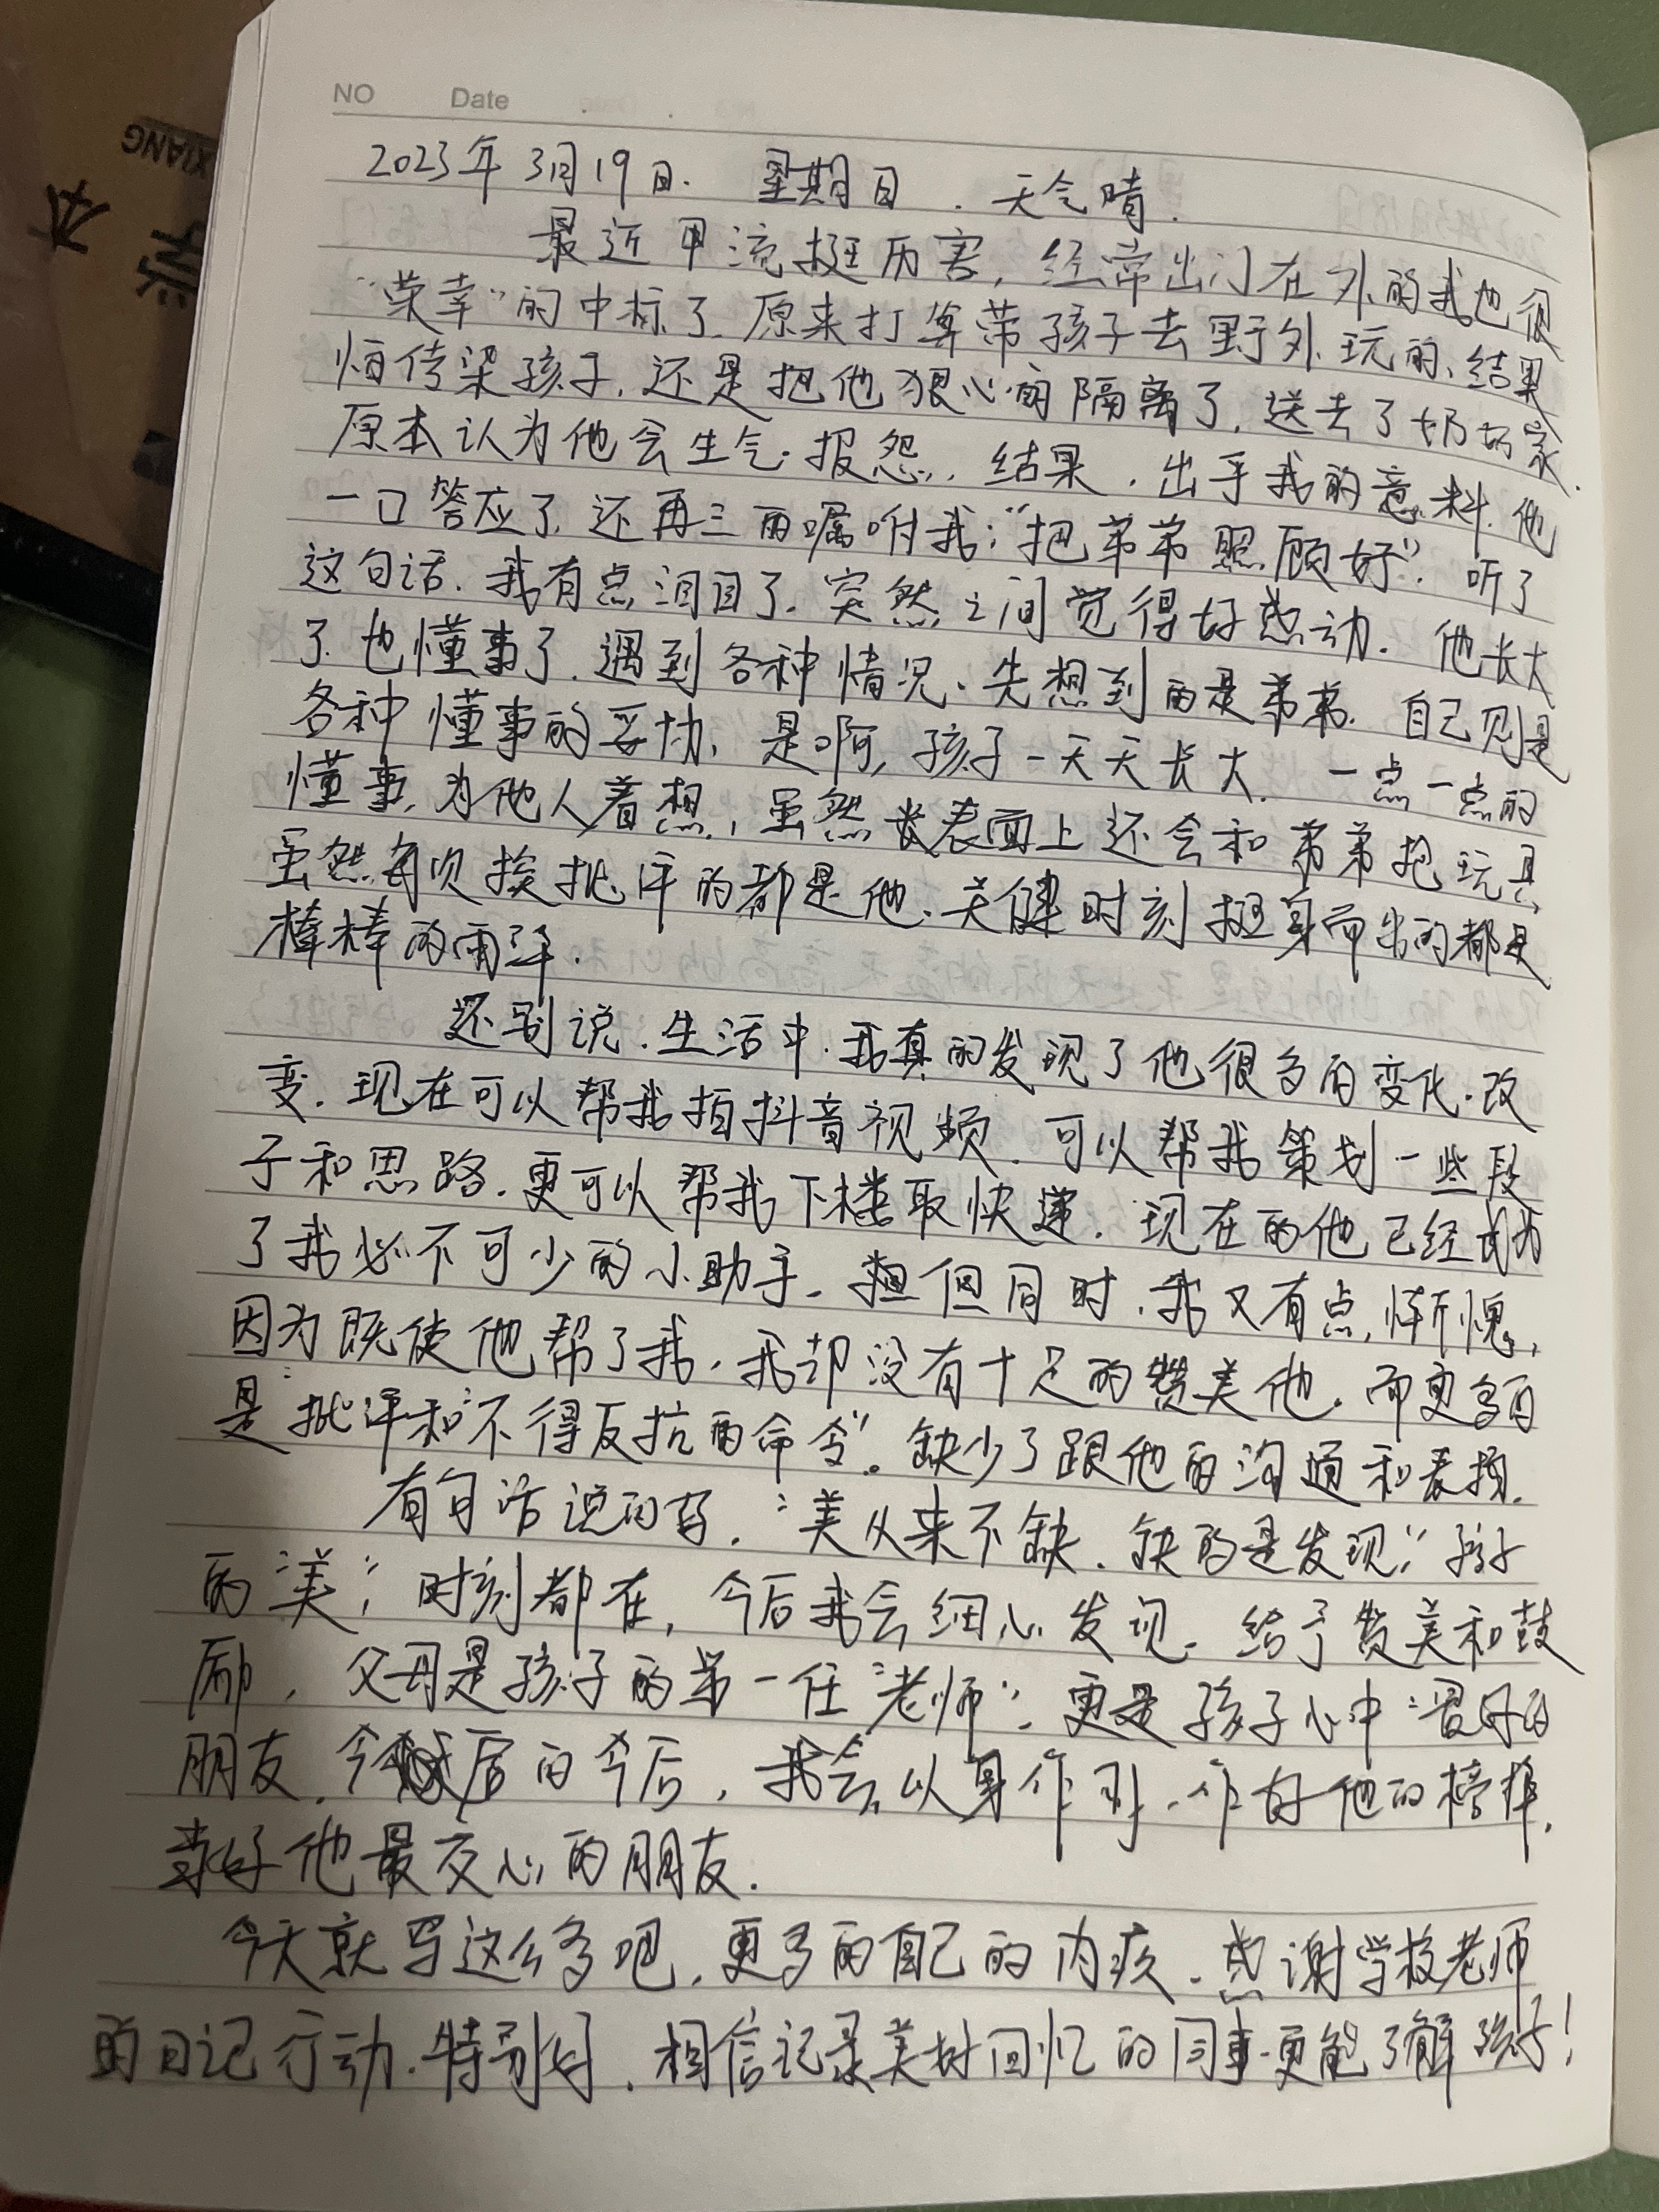 NO Date
XIANG
本
2023年3月19日. 星期日 . 天气晴.
最近甲流挺厉害, 经常出门在外的我也很
“荣幸”的中标了. 原来打算带孩子去野外玩的、结果
怕传染孩子, 还是把他狠心的隔离了, 送去了奶奶家.
原本认为他会生气. 报怨, 结果, 出乎我的意料. 他
一口答应了, 还再三的嘱咐我: “把弟弟照顾好”. 听了
这句话. 我有点泪目了. 突然之间觉得好感动. 他长大
了. 也懂事了. 遇到各种情况、先想到的是弟弟. 自己则是
各种懂事的妥协, 是啊, 孩子一天天长大. 一点一点的
懂事, 为他人着想, 虽然表面上还会和弟弟抢玩具,
虽然每次挨批评的都是他. 关健时刻挺身而出的都是
棒棒的雨泽.
还别说. 生活中. 我真的发现了他很多的变化. 改
变. 现在可以帮我拍抖音视频. 可以帮我策划一些段
子和思路. 更可以帮我下楼取快递. 现在的他已经成为
了我必不可少的小助手. 但同时. 我又有点惭愧,
因为既使他帮了我, 我却没有十足的赞美他. 而更多的
是“批评和“不得反抗的命令”. 缺少了跟他的沟通和表扬.
有句话说的好. “美从来不缺. 缺的是发现”, 孩子
的“美”, 时刻都在, 今后我会细心发现. 给予赞美和鼓
励, 父母是孩子的第一任“老师”, 更是孩子心中“最好的
朋友. 今后的今后, 我会以身作则. 作好他的榜样.
做好他最交心的朋友.
今天就写这么多吧. 更多的自己的内疚. 感谢学校老师
的日记行动. 特别好. 相信记录美好回忆的同事. 更能了解孩子!